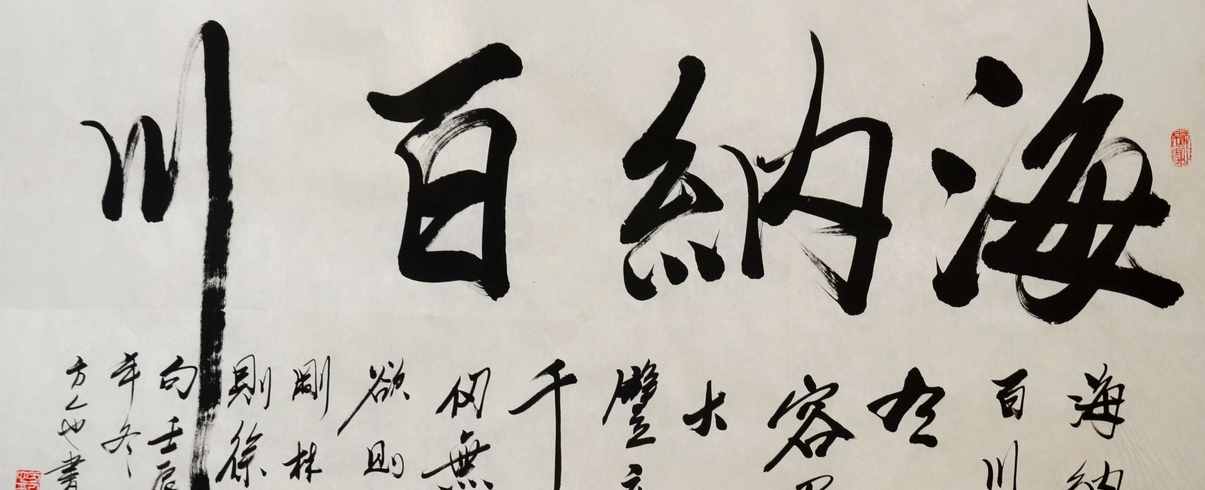 海納百川
海納
百川
有
容
大
壁立
千
仞無
欲則
剛林
則徐
句壬辰
年冬
方書